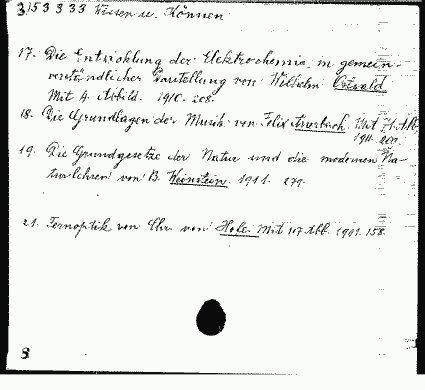 3153333 Wissen u. Können
17. Die Entwicklung der Elektrochemie in gemein-
verständlicher Darstellung von Wilhelm Ostwald
Mit 4. Abbild. 1910. 208.
18. Die Grundlagen der Musik von Felix Auerbach. Mit 71 Abb.
1911. 209.
19. Die Grundgesetze der Natur und die modernen Na-
turlehren von B. Weinstein. 1911. 279.
21. Fernoptik von Chr. von Hofe. Mit 117 Abb. 1911. 158.
8